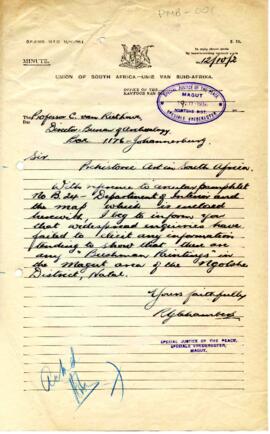 PMB-001
MINUTE.
12/10/2
UNION OF SOUTH AFRICA—UNIE VAN SUID-AFRIKA.
OFFICE OF THE
KANTOOR VAN
SPECIAL JUSTICE OF THE PEACE
MAGUT
SPESIALE VREDEREGTER
The Professor C. van Riet Lowe
Die Director Bureau of Archaeology
Box 1176 Johannesburg
Sir
Prehistoric Art in South Africa.
With reference to circular pamphlet
No B.24 - Department of Interior and
the map which is enclosed
herewith, I beg to inform you
that widespread inquiries have
failed to elicit any information
tending to show that there are
any Bushman Paintings in
the Magut area of the Ngotshe
District, Natal.
Yours faithfully
SPECIAL JUSTICE OF THE PEACE,
SPESIALE VREDEREGTER,
MAGUT.